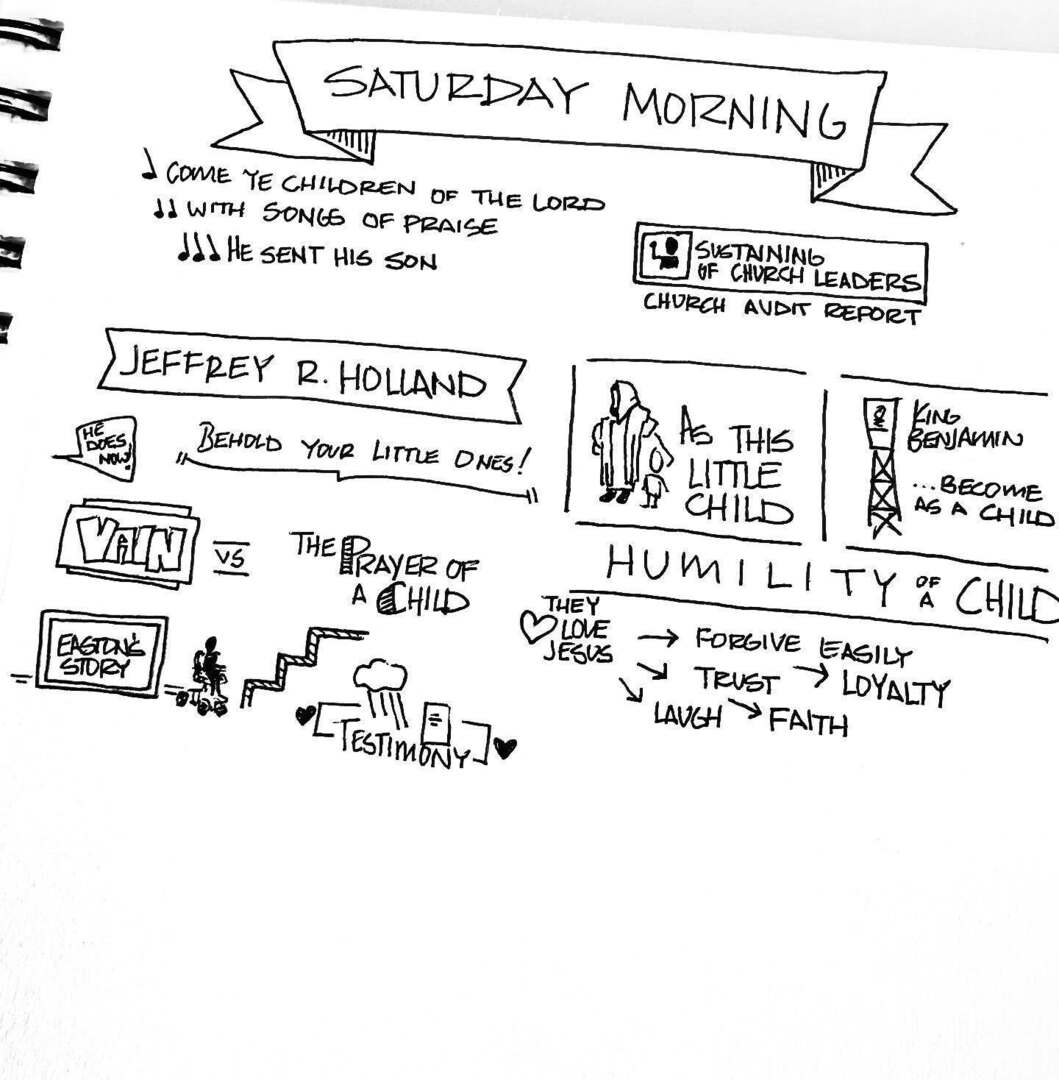 SATURDAY MORNING
COME YE CHILDREN OF THE LORD
WITH SONGS OF PRAISE
HE SENT HIS SON
SUSTAINING
OF CHURCH LEADERS
CHURCH AUDIT REPORT
JEFFREY R. HOLLAND
HE
DOES
NOW!
"BEHOLD YOUR LITTLE ONES!"
VAIN
VS
THE PRAYER OF
A CHILD
EASTON'S
STORY
TESTIMONY
AS THIS
LITTLE
CHILD
KING
BENJAMIN
...BECOME
AS A CHILD
HUMILITY OF A CHILD
THEY
LOVE
JESUS
→ FORGIVE EASILY
→ TRUST → LOYALTY
→ LAUGH → FAITH